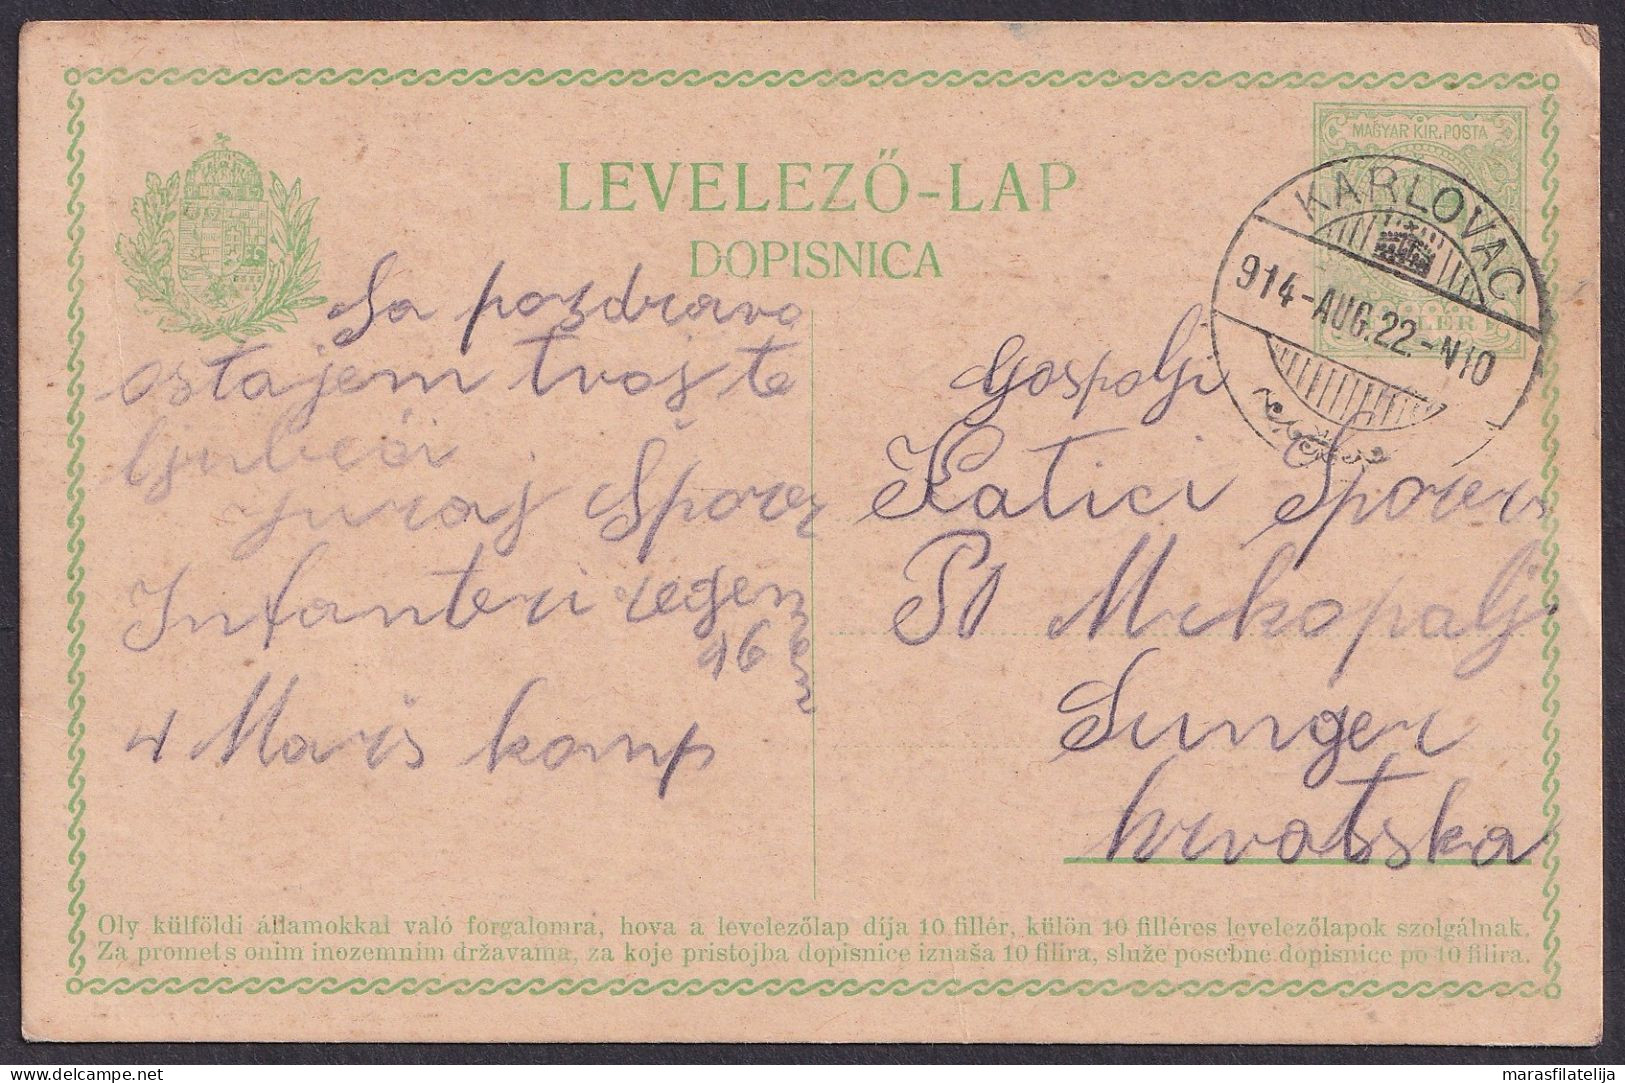 MAGYAR KIR. POSTA
LEVELEZŐ-LAP
DOPISNICA
KARLOVAC
914-AUG.22.-N10
Sa pozdravo
ostajem tvoj te
ljubeći
Juraj Šporer
Infanteri regen
16
4 Marš komp
Gospolji
Katici Šporer
P1 Mrkopalj
Sunger
hrvatska
Oly külföldi államokkal való forgalomra, hova a levelezőlap díja 10 fillér, külön 10 filléres levelezőlapok szolgálnak.
Za promets onim inozemnim državama, za koje pristojba dopisnice iznaša 10 filira, služe posebne dopisnice po 10 filira.
delcampe.net
marasfilatelija